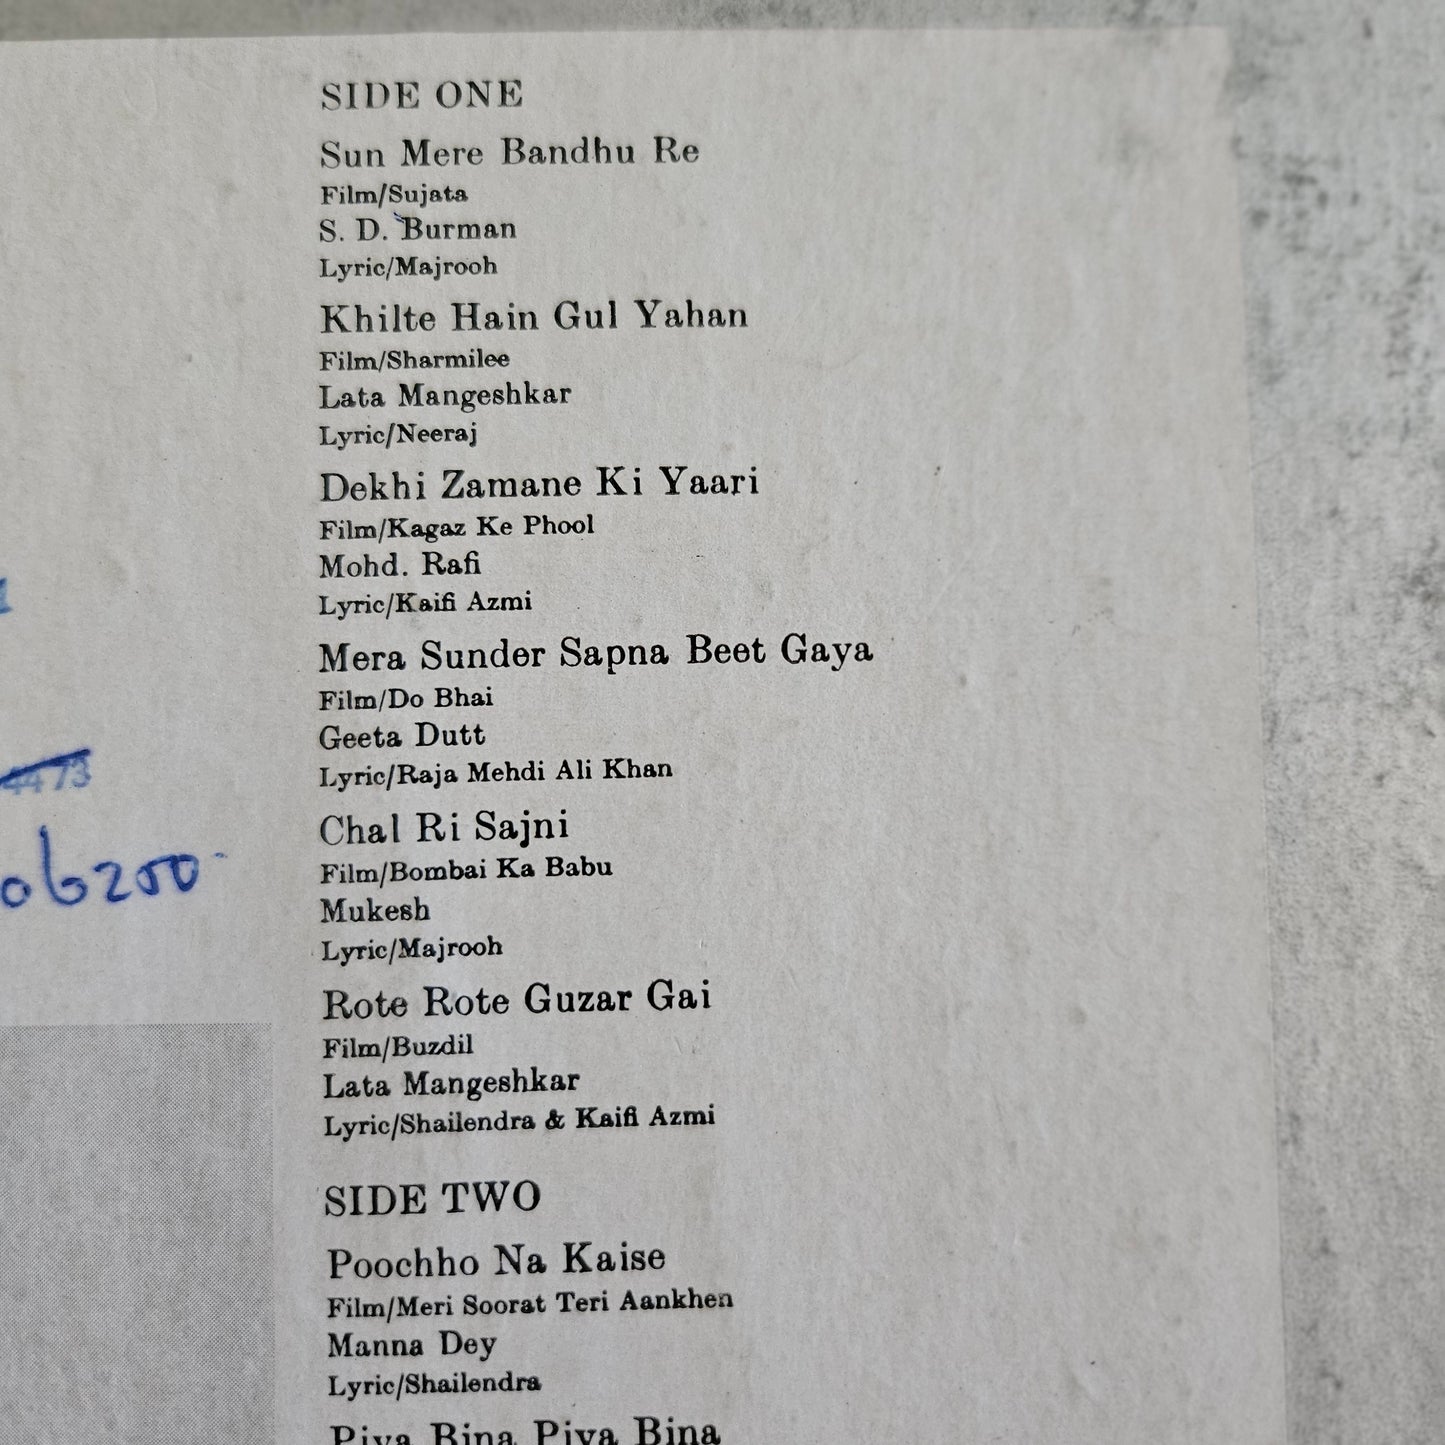 SIDE ONE
Sun Mere Bandhu Re
Film/Sujata
S. D. Burman
Lyric/Majrooh
Khilte Hain Gul Yahan
Film/Sharmilee
Lata Mangeshkar
Lyric/Neeraj
Dekhi Zamane Ki Yaari
Film/Kagaz Ke Phool
Mohd. Rafi
Lyric/Kaifi Azmi
Mera Sunder Sapna Beet Gaya
Film/Do Bhai
Geeta Dutt
Lyric/Raja Mehdi Ali Khan
Chal Ri Sajni
Film/Bombai Ka Babu
Mukesh
Lyric/Majrooh
Rote Rote Guzar Gai
Film/Buzdil
Lata Mangeshkar
Lyric/Shailendra & Kaifi Azmi
SIDE TWO
Poochho Na Kaise
Film/Meri Soorat Teri Aankhen
Manna Dey
Lyric/Shailendra
Piya Bina Piya Bina